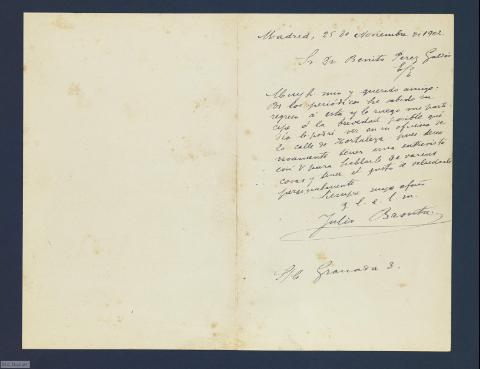 Madrid, 25 de Noviembre de 1902
Sr Dn Benito Pérez Galdós
Muy Sr mio y querido amigo:
Por los periódicos he sabido su
regreso á esta, y le ruego me parti-
cipe á la brevedad posible qué
dia le podré ver en su oficina de
la calle de Hortaleza pues deseo
tener una entrevista
con V para hablarle de varias
cosas y tener el gusto de saludarle
personalmente.
Siempre suyo afmo
q. l. b. l. m.
Julio
S/C Granada 3.